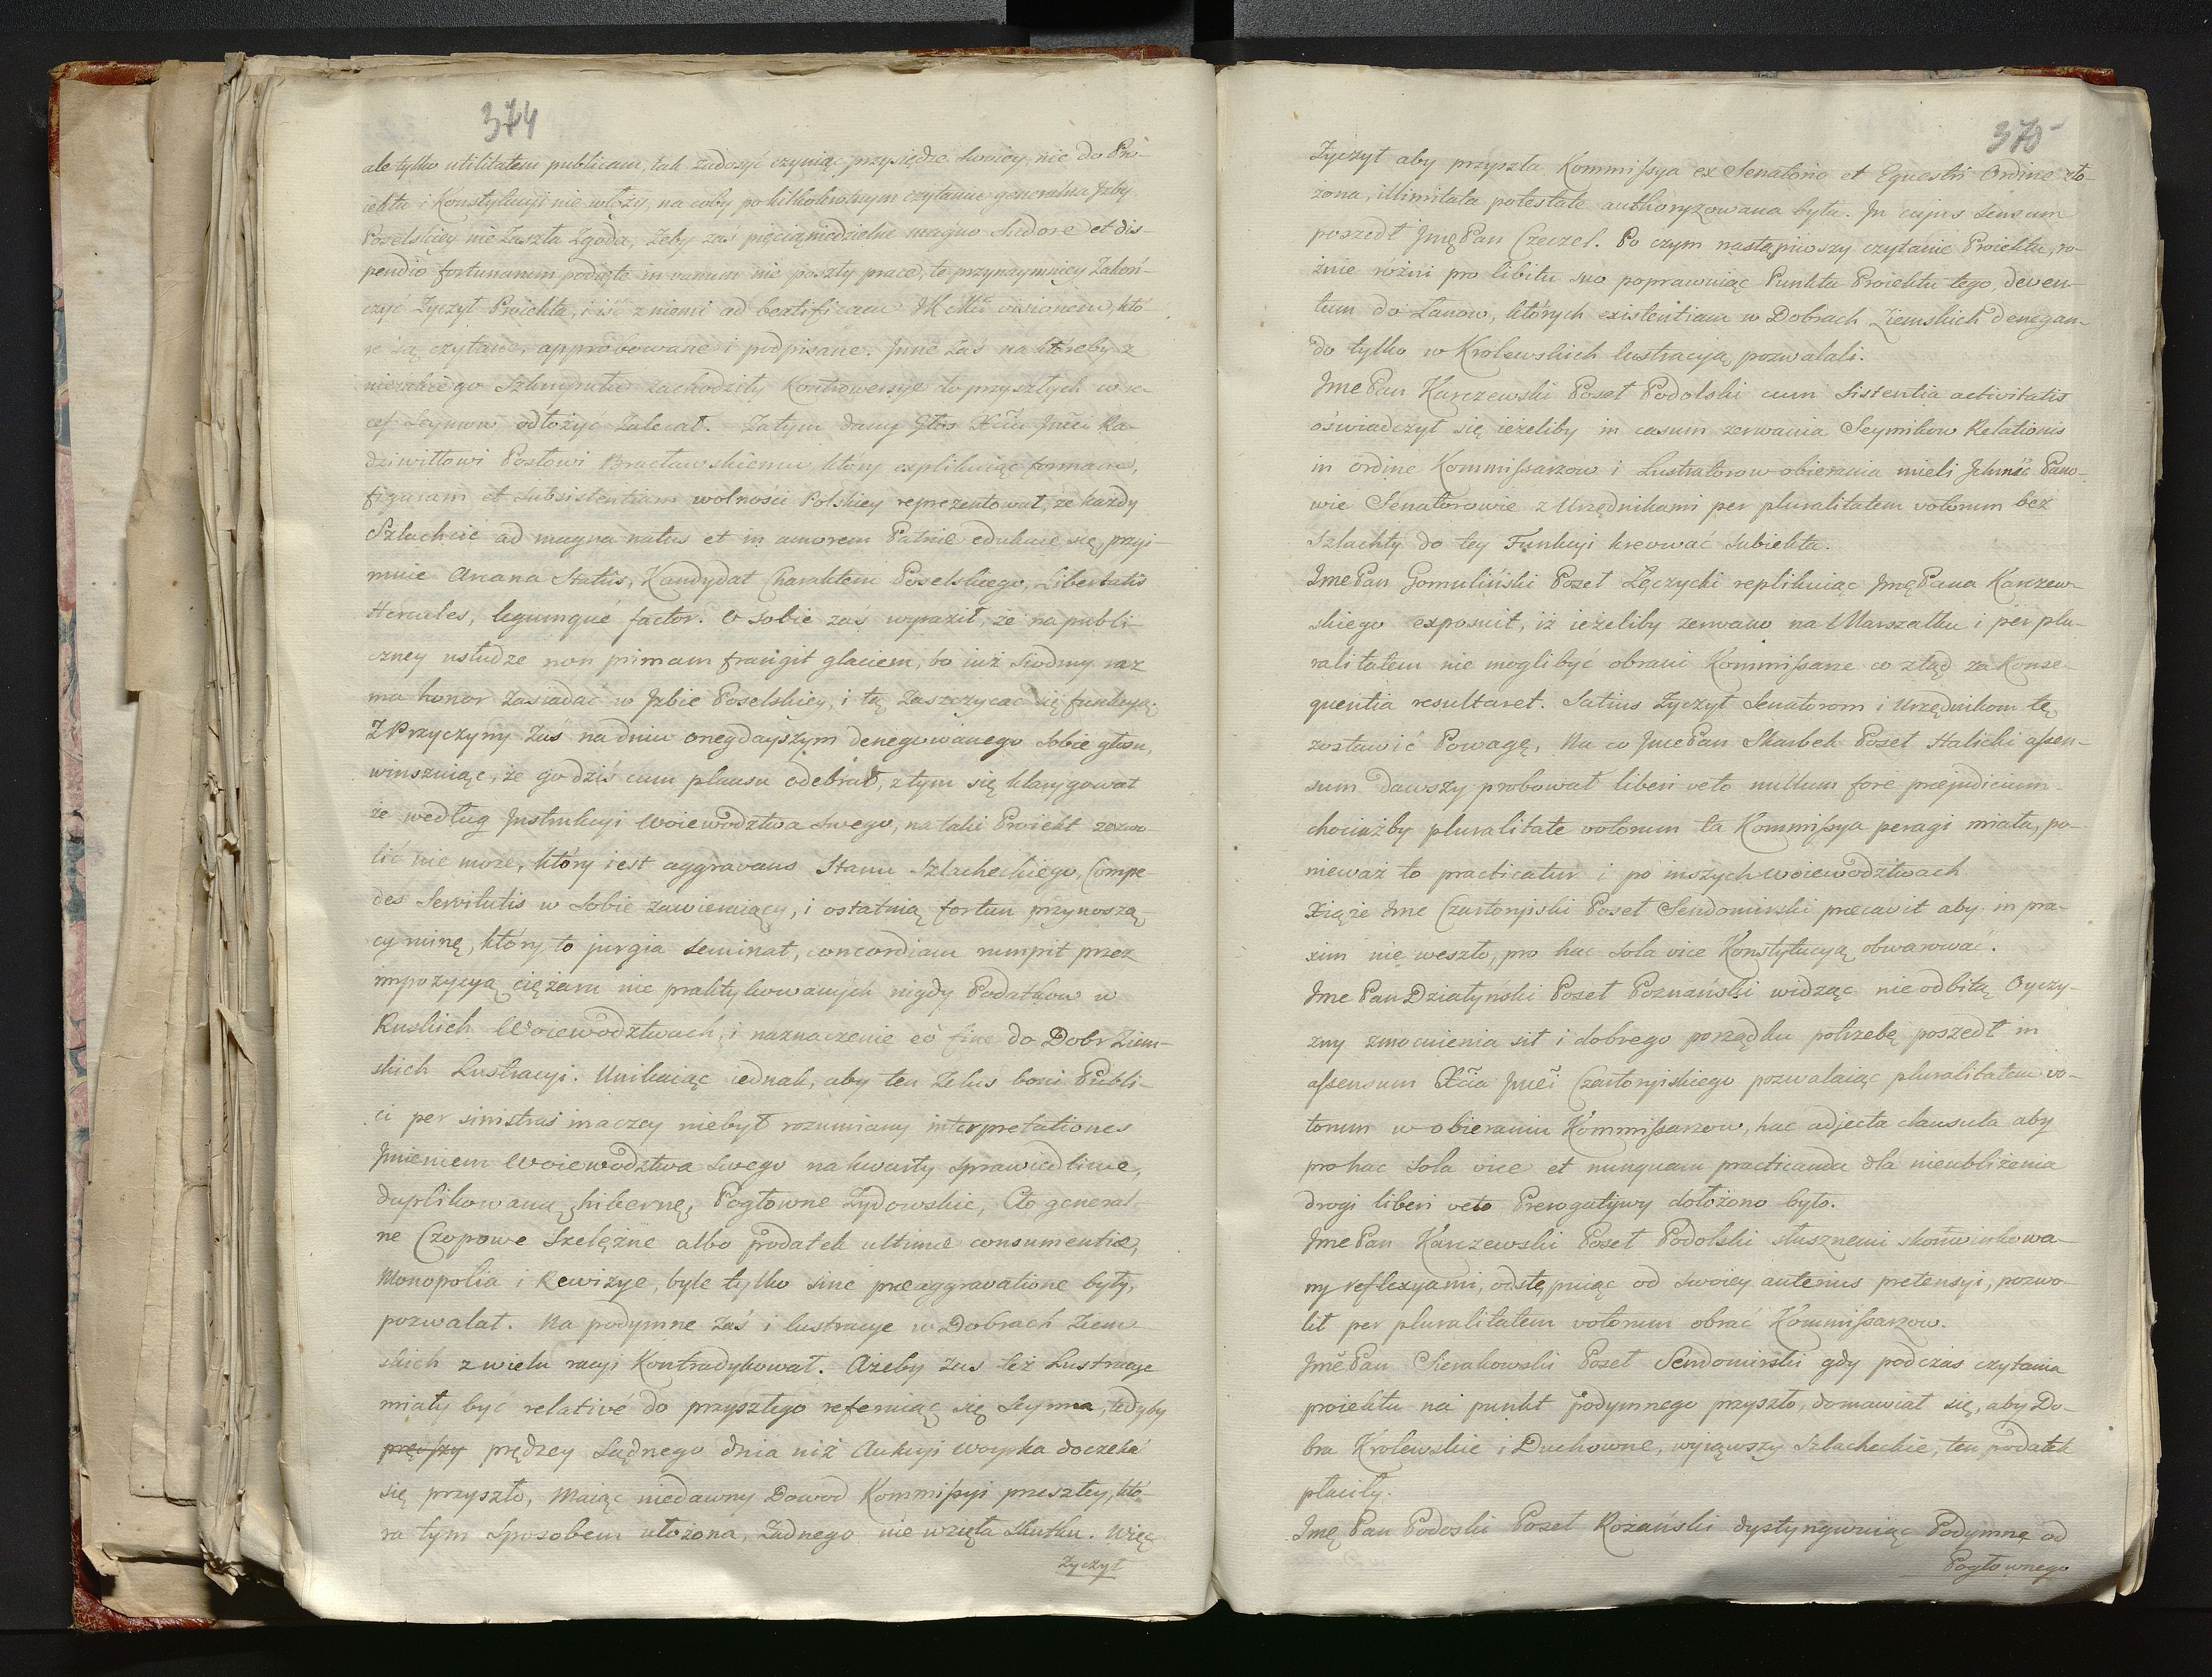 374
ale tylko utilitatem publicam, tak zadosyć czyniąc przysiędze swoiey, nic do Pro-
iektu i Konstytucyi nie włoży, na coby po kilkokrotnym czytaniu generalna Jzby
Poselskiey nie zaszła zgoda, żeby zaś pięciąniedzielne magno sudore et dis-
pendio fortunarum podięte in vanum nie poszły prace, te przynaymniey zakoń-
czyć życzył Proiekta, i iść z niemi ad beatificam JKMći visionem, któ-
re są czytane, approbowane i podpisane. Jnne zaś na któreby z
nieiakiego Szkrupułu zachodziły Kontrowersye do przyszłych in re-
ces Seymu odłożyć zalecał. Zatym dany głos Xćiu Jmći Ra-
dziwiłłowi Posłowi Bracławskiemu który explikuiąc formam,
figuram et subsistentiam wolności Polskiey reprezentował, że każdy
Szlachcic ad magna natus et in amorem Patriæ edukuie się, przyi-
muie Arcana Statûs, Kandydat Charakteru Poselskiego, Libertatis
Hercules, legumqué factor. O sobie zaś wyraził, że na publi-
czney usłudze non primam frangit glaciem, bo iuż siodmy raz
ma honor zasiadać w Jzbie Poselskiey, i tą zaszczycać się funkcyą.
Z Przyczyny zaś na dniu onegdayszym denegowanego sobie głosu,
winszuiąc, że go dziś cum plausu odebrał, z tym się klarygował
że według Jnstrukcyi Woiewodztwa swego, na taki Proiekt zezwo-
lić nie może, który iest aggravans Stanu Szlacheckiego, Compe-
des Servitutis w sobie zawieraiący, i ostatnią fortun przynoszą-
cy ruinę, który to jurgia seminat, concordiam rumpit przez
impozycyą ciężaru nie praktykowanych nigdy Podatkow w
Ruskich Woiewodztwach, i naznaczenie eo fine do Dobr Ziem-
skich Lustracyi. Unikaiąc iednak, aby ten Zelus boni Publi-
ci per sinistras inaczey niebył rozumiany interpretationes
Jmieniem Woiewodztwa swego na kwarty sprawiedliwe,
duplikowaną hibernę, Pogłowne Zydowskie, Cło general-
ne Czopowe Szelężne albo Podatek ultimæ consumentiæ,
Monopolia i Rewizye, byle tylko sine præaggravatione były,
pozwalał. Na podymne zaś i lustracye w Dobrach Ziem-
skich z wielu racyi Kontradykował. Ażeby zas też Lustracye
miały być relativé do przyszłego referuiąc się Seymu, tedyby
prę̨szy prędzey Sądnego dnia niż Aukcyi woyska doczekać
się przyszło, Maiąc niedawny Dowod Kommissyi przeszłey, któ-
ra tym Sposobem ułożona, żadnego nie wzięła skutku. Więc
życzył
375
Życzył aby przyszła Kommissya ex Senatorio et Equestri Ordine zło-
żona, illimitata potestate authoryzowana była. In cujus sensum
poszedł Jmę Pan Czeczel. Po czym nastąpiwszy czytanie Proiektu, ro-
żnie różni pro libitu suo poprawuiąc Punkta Proiektu tego, deven-
tum do Łanow, których existentiam w Dobrach Ziemskich denegan-
do tylko w Krolewskich lustracyą pozwalali.
Jme Pan Karczewski Poseł Podolski cum sistentia activitatis
oświadczył się ieżeliby in casum zerwania Seymikow Relationis
in ordine Kommissarzow i Lustratorow obierania mieli Jchmść Pano-
wie Senatorowie z Urzędnikami per pluralitatem votorum bez
Szlachty do tey Funkcyi kreować Subiekta.
Jme Pan Gomuliński Poseł Łęczycki replikuiąc Jmę Pana Karczew-
skiego exposuit, iż ieżeliby zerwano na Marszałku i per plu-
ralitatem nie mogli być obrani Kommissarze co ztąd za Konse-
quentia resultaret. Satius życzył Senatorom i Urzędnikom tę
zostawić Powagę, Na co Jme Pan Skarbek Poseł Halicki assen-
sum dawszy probował liberi veto nullum fore præjudicium
chociażby pluralitate votorum ta Kommissya peragi miała, po-
nieważ to practicatur i po inszych woiewodztwach
Xiąże Jme Czartoryiski Poseł Sendomirski præcavit aby in pra-
xim nie weszło, pro hac sola vice Konstytucyą obwarować.
Jme Pan Działyński Poseł Poznański widząc nie odbitą Oyczy-
zny zmocnienia sił i dobrego porządku potrzebę poszedł in
assensum Xćia Jmći Czartoryiskiego pozwalaiąc pluralitatem vo-
torum w obieraniu Kommissarzow, hac adjecta clausula aby
pro hac sola vice et nunquam practicanda dla nieubliżenia
drogi liberi veto Prerogatywy dołożono było.
Jme Pan Karczewski Poseł Podolski słusznemi skonwinkowa-
ny reflexyami, odstępuiąc od swoiey anterius pretensyi, pozwo-
lił per pluralitatem votorum obrać Kommissarzow.
Jmę Pan Sierakowski Poseł Sendomirski gdy podczas czytania
proiektu na punkt podymnego przyszło, domawiał się, aby Do-
bra Krolewskie i Duchowne, wyiąwszy Szlacheckie, ten podatek
płaciły.
Jmę Pan Podoski Poseł Rożański dystyngwuiąc Podymne od
Pogłownego